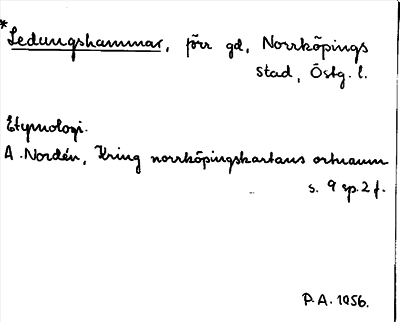 *Ledungshammar, förr gd, Norrköpings
stad, Östg. l.
Etymologi.
A. Nordén, Kring norrköpingskartans ortnamn
s. 9 sp. 2 f.
P.A. 1956.